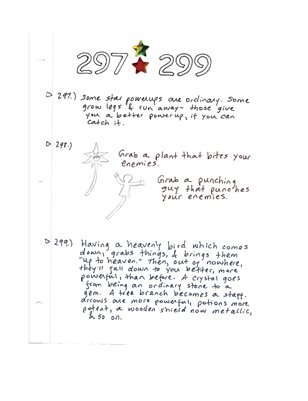 297 299
297.) Some star powerups are ordinary. Some
grow legs & run away - those give
you a better powerup, if you can
catch it.
298.)
Grab a plant that bites your
enemies.
Grab a punching
guy that punches
your enemies.
299.) Having a heavenly bird which comes
down, grabs things, & brings them
"up to heaven." Then, out of nowhere,
they'll fall down to you better, more
powerful, than before. A crystal goes
from being an ordinary stone to a
gem. A tree branch becomes a staff.
arrows are more powerful, potions more
potent, a wooden shield now metallic,
& so on.